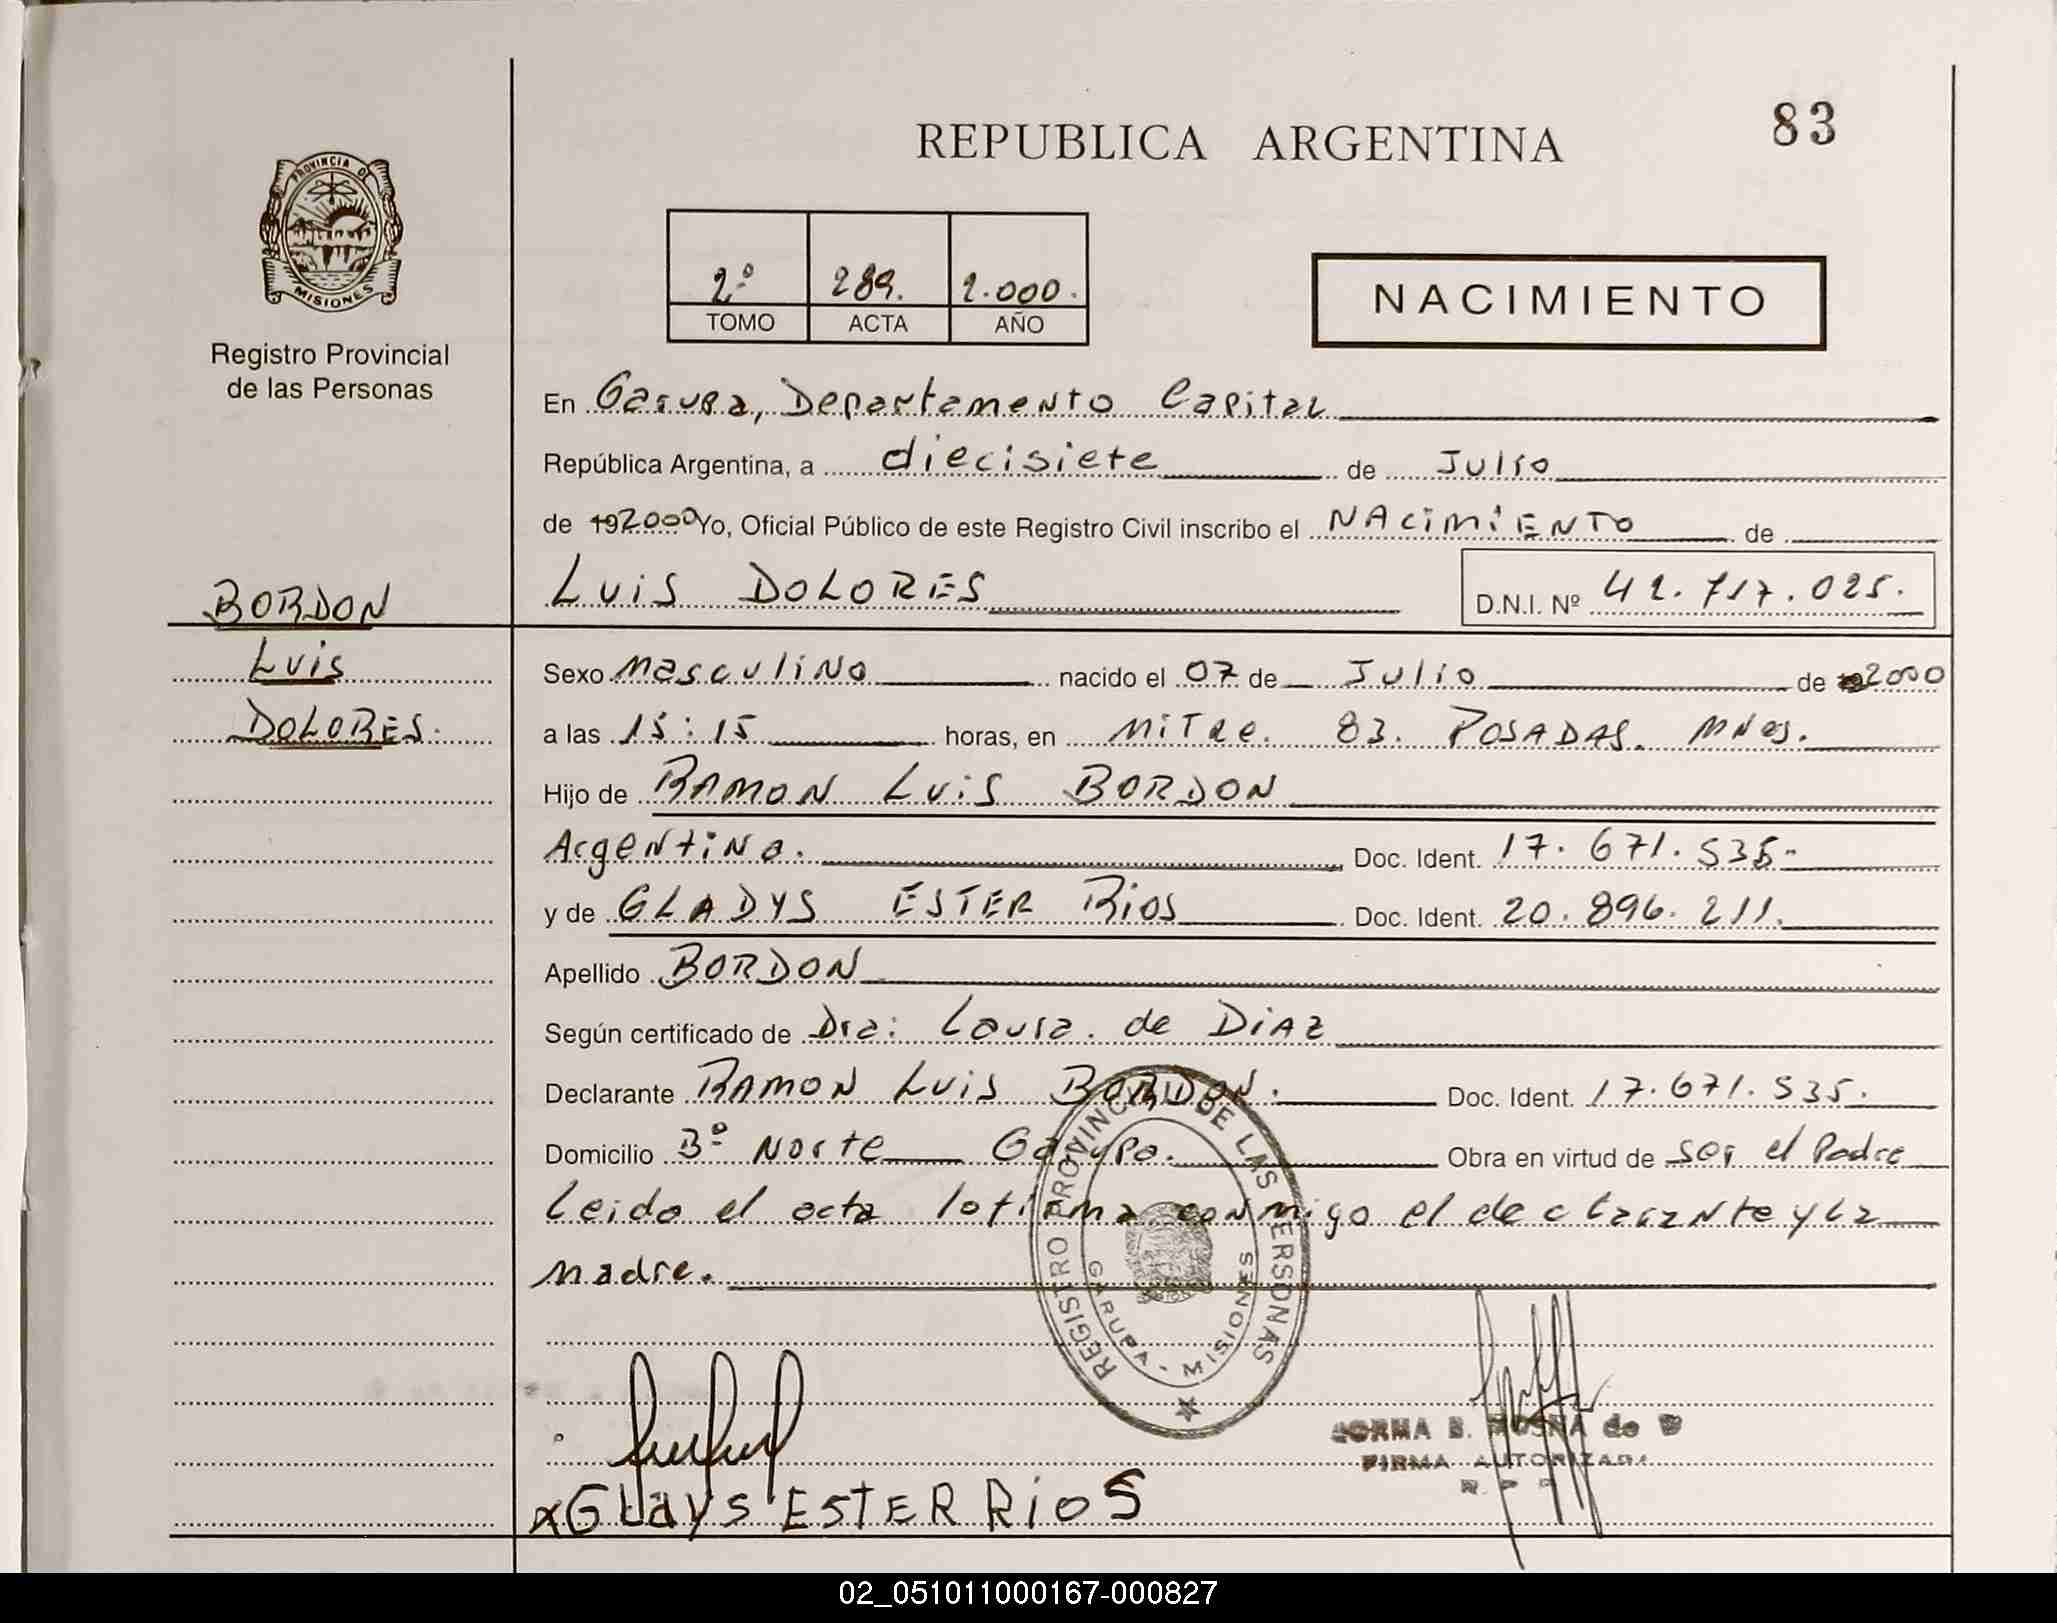 REPUBLICA ARGENTINA
83
PROVINCIA DE
MISIONES
Registro Provincial
de las Personas
2º 289. 2.000.
TOMO ACTA AÑO
NACIMIENTO
En Garupa, Departamento Capital
República Argentina, a diecisiete de Julio
de 192000 Yo, Oficial Público de este Registro Civil inscribo el NACIMIENTO de
BORDON
LUIS DOLORES
D.N.I. Nº 42.717.025.
Luis
DOLORES.
Sexo Masculino nacido el 07 de Julio de 2000
a las 15:15 horas, en Mitre. 83. POSADAS. Mnes.
Hijo de RAMON LUIS BORDON
Argentino. Doc. Ident. 17.671.535-
y de GLADYS ESTER RIOS Doc. Ident. 20.896.211.
Apellido BORDON
Según certificado de Dra: Laura. de DIAZ
Declarante RAMON LUIS BORDON. Doc. Ident. 17.671.535.
Domicilio Bº Norte Garupa. Obra en virtud de ser el Padre
Leida el acta la firma conmigo el declarante y la
madre.
REGISTRO PROVINCIAL DE LAS PERSONAS
GARUPA - MISIONES
NORMA B. MOSNA de
FIRMA AUTORIZADA
R. P. P.
x GLadys ESTER RioS
02_051011000167-000827